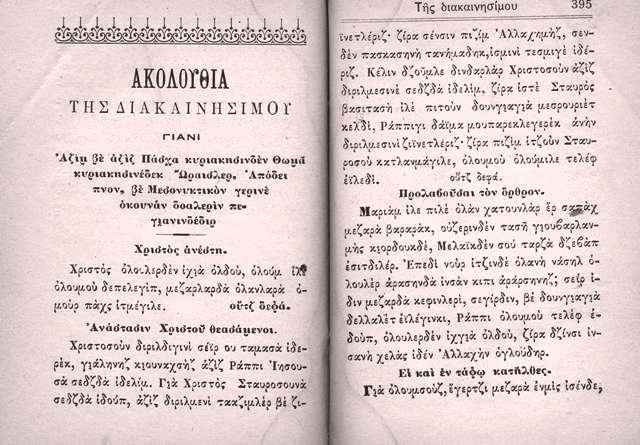 ΑΚΟΛΟΥΘΙΑ
ΤΗΣ ΔΙΑΚΑΙΝΗΣΙΜΟΥ
ΓΙΑΝΙ
Ἀζὶμ βὲ ἀζὶζ Πάσχα κυριακησινδὲν Θωμᾶ
κυριακησινέδεκ Ὡραισλερ. Ἀπόδει
πνον, βὲ Μεσονυκτικὸν γερινὲ
ὀκουνὰν δοαλερὶν πε-
γιανινδέδιρ
Χριστὸς ἀνέστη.
Χριστὸς ὀλουλερδὲν ἐχιὰ ὀλδοὺ, ὀλοὺμ ἰλὲ
ὀλουμοῦ δεπελεγὶπ, μεζαρλαρδὰ ὀλανλαρὰ ὀ-
μοὺρ πὰχς ἰτμέγιλε. οὔτζ δεφά.
Ἀνάστασιν Χριστοῦ θεασάμενοι.
Χριστοσοὺν διριλδιγινὶ σέϊρ ου ταμασὰ ἰδε-
ρὲκ, γιάληνηζ κιουναχσὴζ ἀζὶζ Ράππι Ἰησου-
σὰ σεδζδὰ ἰδελίμ. Γιὰ Χριστὸς Σταυροσουνὰ
σεδζδὰ ἰδοὺπ, ἀζὶζ διριλμενὶ τααζιμλὲρ βὲ ζι-
Τῆς διακαινησίμου 395
ϊνετλέριζ· ζίρα σένσιν πιζὶμ Ἀλλαχημὴζ, σεν-
δὲν πασκασηνὴ τανήμαδηκ, ἰσμινὶ τεσμιγὲ ἰδέ-
ριζ. Κέλιν δζοῦμλε δινδαρλὰρ Χριστοσοὺν ἀζὶζ
διριλμεσινὲ σεδζδὰ ἰδελὶμ, ζίρα ἰστὲ Σταυρὸς
βασιτασὴ ἰλὲ πιτοὺν δουνγιαγιὰ μεσρουριὲτ
κελδὶ, Ράππιγι δάϊμα μουπαρεκλεγερὲκ ἀνὴν
διριλμεσινὶ ζιϊνετλέριζ· ζίρα πιζὶμ ἰτζοὺν Σταυ-
ροσοῦ κατλανμάγιλε, ὀλουμοῦ ὀλούμιλε τελὲφ
ἐϊλεδί. οὔτζ δεφά.
Προλαβοῦσαι τὸν ὄρθρον.
Μαριὰμ ἰλε πιλὲ ὀλὰν χατουνλὰρ ἒρ σαπὰχ
μεζαρὰ βαραρὰκ, οὐζερινδὲν τασῆ γιουβαρλαν-
μὴς κιορδουκδὲ, Μελαϊκδὲν σοὺ ταρζὰ δζεβὰπ
ἐσιτδιλέρ. Ἐπεδὶ νοὺρ ἰτζινδὲ ὀλανὴ νάσηλ ὀ-
λουλὲρ ἀρασηνδὰ ἰνσὰν κιπι ἀράρσηνηζ; σεὶρ ἰ-
δὶν μεζαρδὰ κεφινλερὶ, σεγίρδιν, βὲ δουνγιαγιὰ
δελλαλὲτ εἰλέγινκι, Ράππι ὀλουμοῦ τελὲφ ἐ-
δοὺπ, ὀλουλερδὲν ἐχγιὰ ὀλδοὺ, ζίρα δζίνσι ἰν-
σανὴ χελὰς ἰδὲν Ἀλλαχὴν ὀγλούδηρ.
Εἰ καὶ ἐν τάφῳ κατῆλθες.
Γιὰ ὀλουμσοὺζ, ἔγερτζι μεζαρὰ ἐνμὶς ἰσένδε,